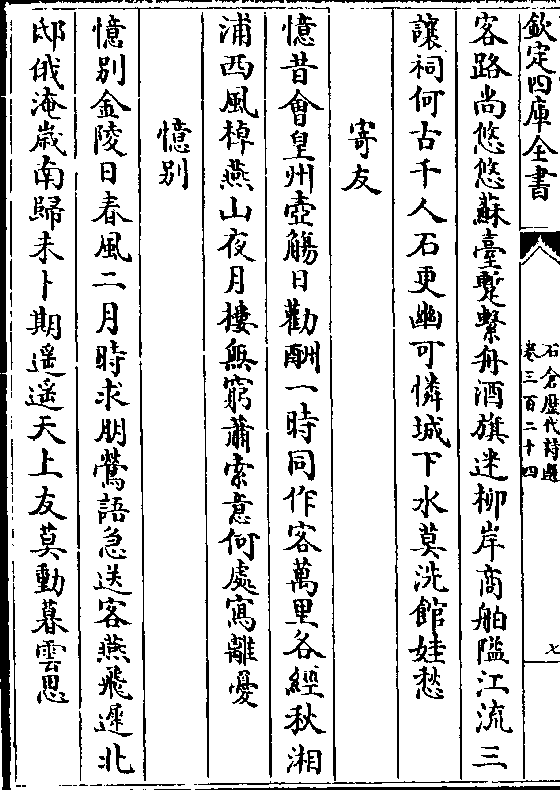 欽定四庫全書
石倉歷代詩選
卷三百二十四
七
客路尚悠悠蘇臺蹔繫舟酒旗迷柳岸商舶隘江流三
讓祠何古千人石更幽可憐城下水莫洗館娃愁
寄友
憶昔會皇州壺觴日勸酬一時同作客萬里各經秋湘
浦西風棹燕山夜月樓無窮蕭索意何處寫離憂
憶别
憶别金陵日春風二月時求朋鶯語急送客燕飛遲北
邸俄淹歲南歸未卜期遥遥天上友莫動暮雲思